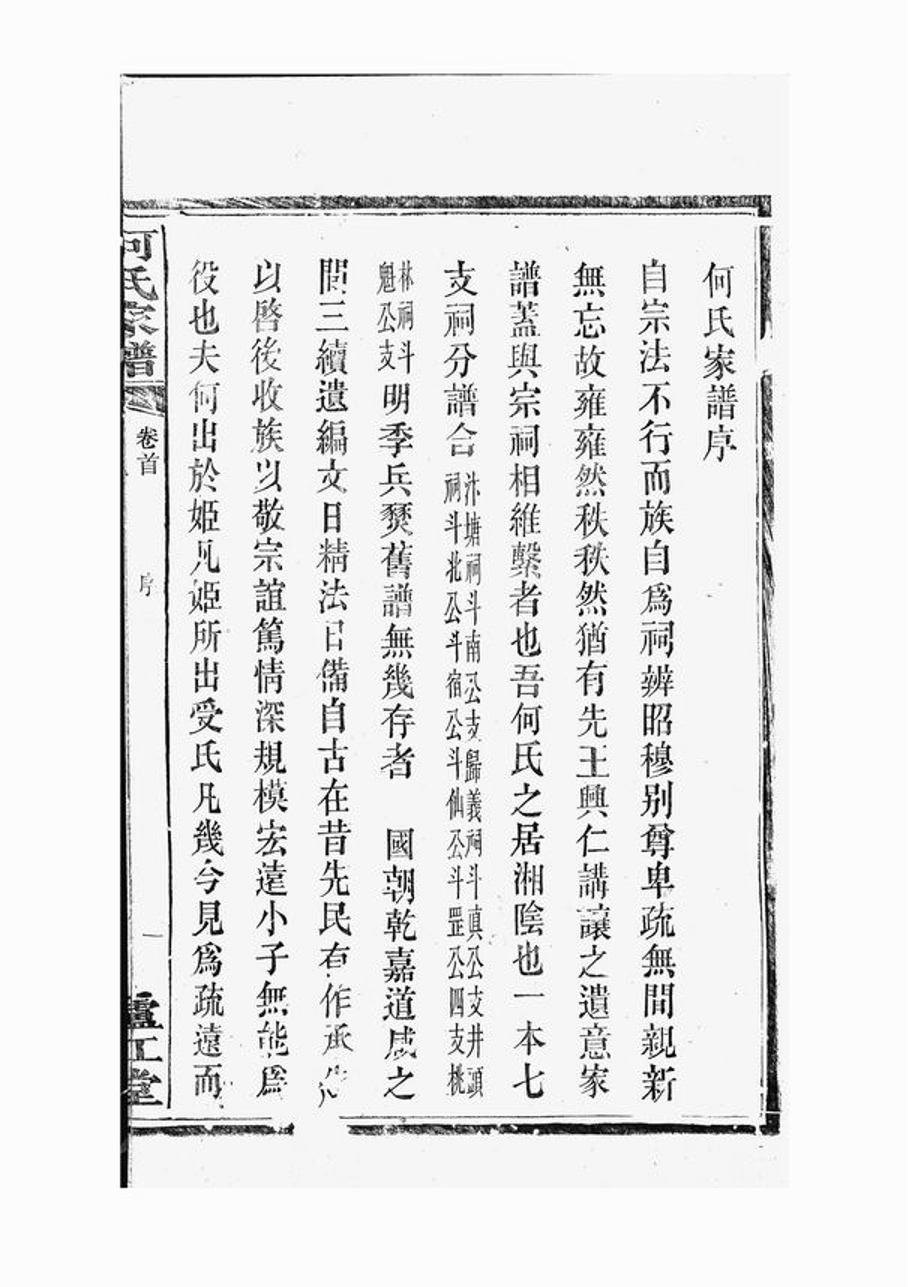 何氏家譜序
自宗法不行而族自爲祠辨昭穆别尊卑疏無間親新
無忘故雍雍然秩秩然猶有先王興仁講讓之遺意家
譜蓋與宗祠相維繫者也吾何氏之居湘陰也一本七
支祠分譜合
汴塘祠斗南公支歸義祠斗眞公支井頭
祠斗北公斗宿公斗仙公斗罡公四支桃
林祠斗
魁公支
明季兵燹舊譜無幾存者 國朝乾嘉道咸之
間三續遺編文日精法日備自古在昔先民有作承先
以啓後收族以敬宗誼篤情深規模宏遠小子無能爲
役也夫何出於姬凡姬所出受氏凡幾今見爲疏遠而
何氏家譜
卷首
序
一
廬江堂